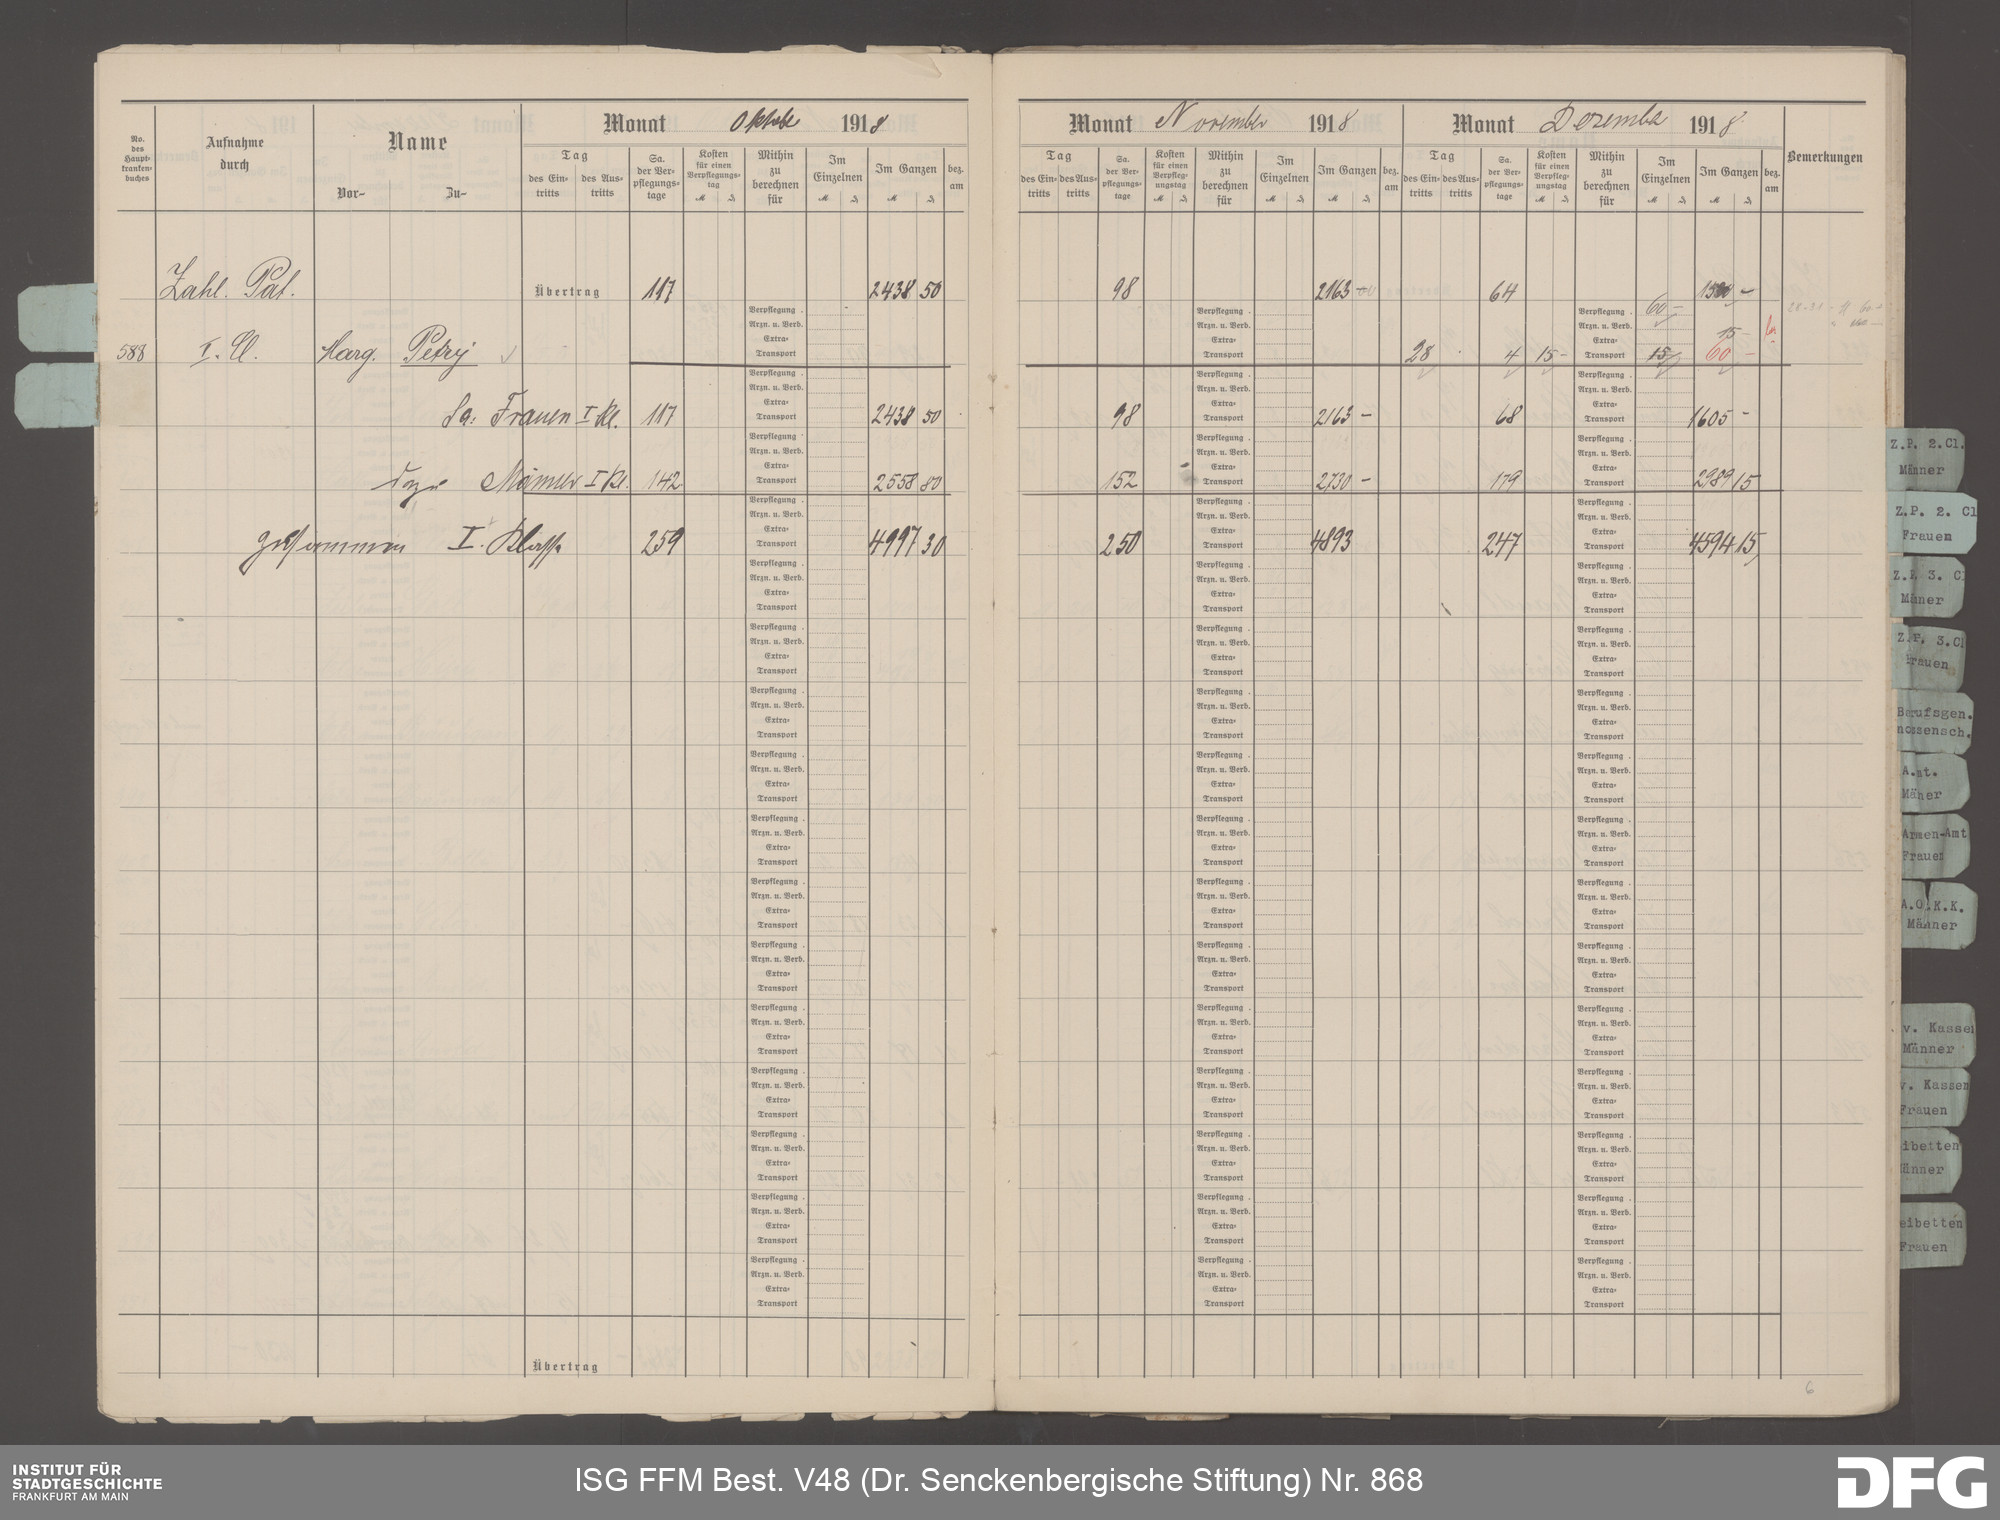 No. des Haupt-krankenbuches
Aufnahme durch
Name
Vor- Zu-
Monat Oktober 1918
Tag
des Eintritts des Austritts
Sa. der Verpflegungstage
Kosten für einen Verpflegungstag
M ₰
Mithin zu berechnen für
Im Einzelnen
M ₰
Im Ganzen
M ₰
bez. am
Monat November 1918
Tag
des Eintritts des Austritts
Sa. der Verpflegungstage
Kosten für einen Verpflegungstag
M ₰
Mithin zu berechnen für
Im Einzelnen
M ₰
Im Ganzen
M ₰
bez. am
Monat Dezember 1918
Tag
des Eintritts des Austritts
Sa. der Verpflegungstage
Kosten für einen Verpflegungstag
M ₰
Mithin zu berechnen für
Im Einzelnen
M ₰
Im Ganzen
M ₰
bez. am
Bemerkungen
Zahl. Pat. Übertrag 117 2438 50 98 2163 00 64
Verpflegung . Verpflegung . Verpflegung . 60 -
Arzn. u. Verb. Arzn. u. Verb. Arzn. u. Verb. 15 -
Extra- Extra- Extra-
588 I. Cl. Marg. Petry Transport Transport 28 4 15 - Transport 15 60 -
Sa: Frauen I Kl. 117 2438 50 98 2163 - 68 1605 -
dazu Männer I Kl. 142 2558 80 152 2730 - 179 2989 15
zusammen I. Klasse 259 4997 30 250 4893 247 4594 15
Verpflegung .
Arzn. u. Verb.
Extra-
Transport
Übertrag
6
Z.P. 2.Cl.
Männer
Z.P. 2. Cl
Frauen
Z.P. 3. Cl
Männer
Z.P. 3.Cl
Frauen
Berufsgen.
nossensch.
A.mt.
Männer
Armen-Amt
Frauen
A.O.K.K.
Männer
v. Kassen
Männer
v. Kassen
Frauen
eibetten
Männer
eibetten
Frauen
INSTITUT FÜR
STADTGESCHICHTE
FRANKFURT AM MAIN
ISG FFM Best. V48 (Dr. Senckenbergische Stiftung) Nr. 868
DFG